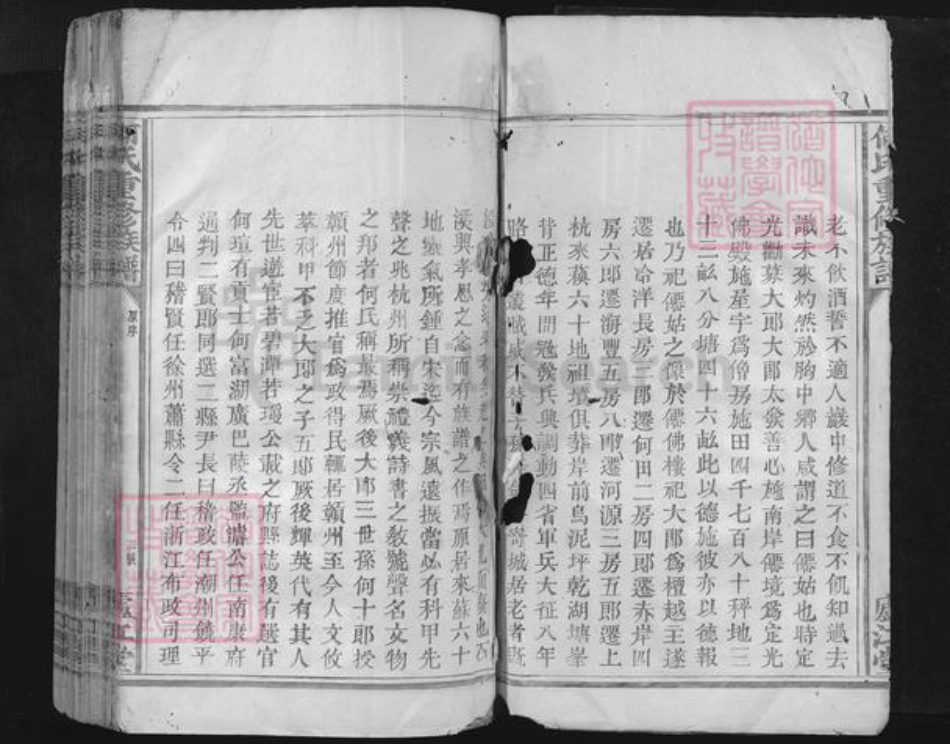 何氏重修族譜
廬江堂
老不飲酒誓不適人巖中修道不食不飢知過去
識未來灼然於胸中鄉人咸謂之曰僊姑也時定
光勸募大郎大郎太發善心施南岸僊境爲定光
佛殿施屋宇爲僧房施田四千七百八十秤地三
十三畝八分塘四十六畝此以德施彼亦以德報
也乃祀僊姑之像於僊佛樓祀大郎爲檀越王遂
遷居冷洋長房三郎遷何田二房四郎遷赤岸四
房六郎遷海豐五房八郎遷河源三房五郎遷上
杭來蘓六十地祖墳俱葬岸前烏泥坪乾湖塘峯
背正德年間冦發兵興調動四省軍兵大征八年
城居老者旣
漢興孝思之念而有族譜之作焉原居來蘇六十
地靈氣所鍾自宋迄今宗風遠振當必有科甲先
聲之兆杭州所稱崇禮義詩書之敎號聲名文物
之邦者何氏稱最焉厥後大郎三世孫何十郎授
贛州節度推官爲政得民輝居贛州至今人文攸
萃科甲不乏大郎之子五郎厥後輝英代有其人
先世遊宦若碧潭若瑗公載之府縣誌後有選官
何瑄有貢士何富湖廣巴陵丞監濤公任南康府
通判二賢郎同選二縣尹長曰稽政任潮州饒平
令四曰稽賢任徐州蕭縣令二任浙江布政司理
何氏重修族譜
原序